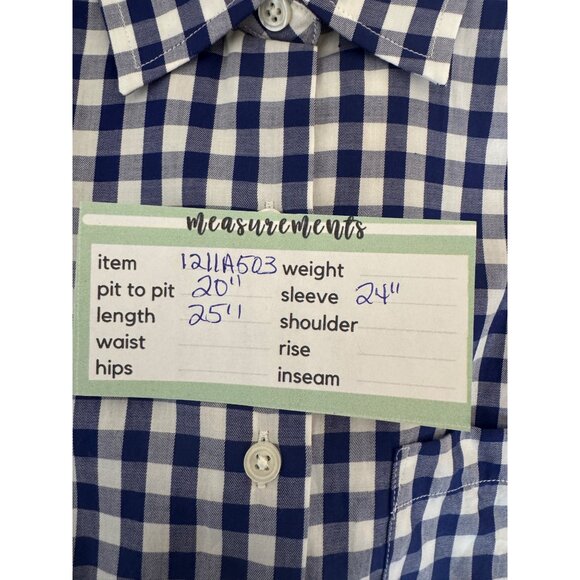 measurements
item 1211A503 weight
pit to pit 20" sleeve 24"
length 25" shoulder
waist rise
hips inseam